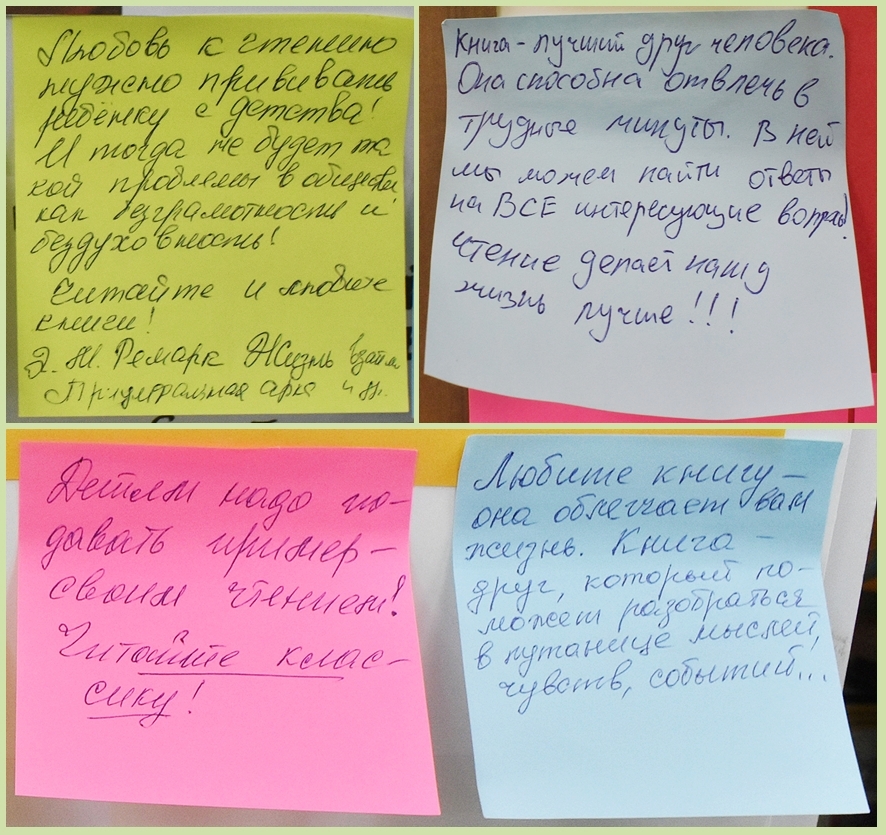 Любовь к чтению
нужно прививать
ребёнку с детства!
И тогда не будет та
кой проблемы в обществе
как безграмотность и
бездуховность!
Читайте и любите
книги!
Э. М. Ремарк Жизнь взаймы
Триумфальная арка и др.
Книга - лучший друг человека.
Она способна отвлечь в
трудные минуты. В ней
мы можем найти ответы
на ВСЕ интересующие вопросы!
Чтение делает нашу
жизнь лучше!!!
Детям надо по-
давать пример -
своим чтением!
Читайте клас-
сику!
Любите книгу -
она облегчает вам
жизнь. Книга -
друг, который по-
может разобраться
в путанице мыслей,
чувств, событий...